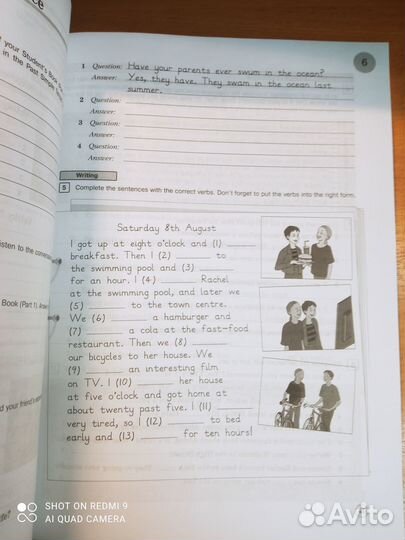 ce
of your Student's Book
in the Past Simple
6
1 Question: Have your parents ever swum in the ocean?
Answer: Yes, they have. They swam in the ocean last
summer.
2 Question:
Answer:
3 Question:
Answer:
4 Question:
Answer:
Writing
5 Complete the sentences with the correct verbs. Don't forget to put the verbs into the right form.
listen to the
Book (Part 1).
nd your friend's
Saturday 8th August
I got up at eight o'clock and (1)
breakfast. Then I (2) to
the swimming pool and (3)
for an hour. I (4) Rachel
at the swimming pool, and later we
(5) to the town centre.
We (6) a hamburger and
(7) a cola at the fast-food
restaurant. Then we (8)
our bicycles to her house. We
(9) an interesting film
on TV. I (10) her house
at five o'clock and got home at
about twenty past five. I (11)
very tired, so I (12) to bed
early and (13) for ten hours!
SHOT ON REDMI 9
AI QUAD CAMERA
Avito